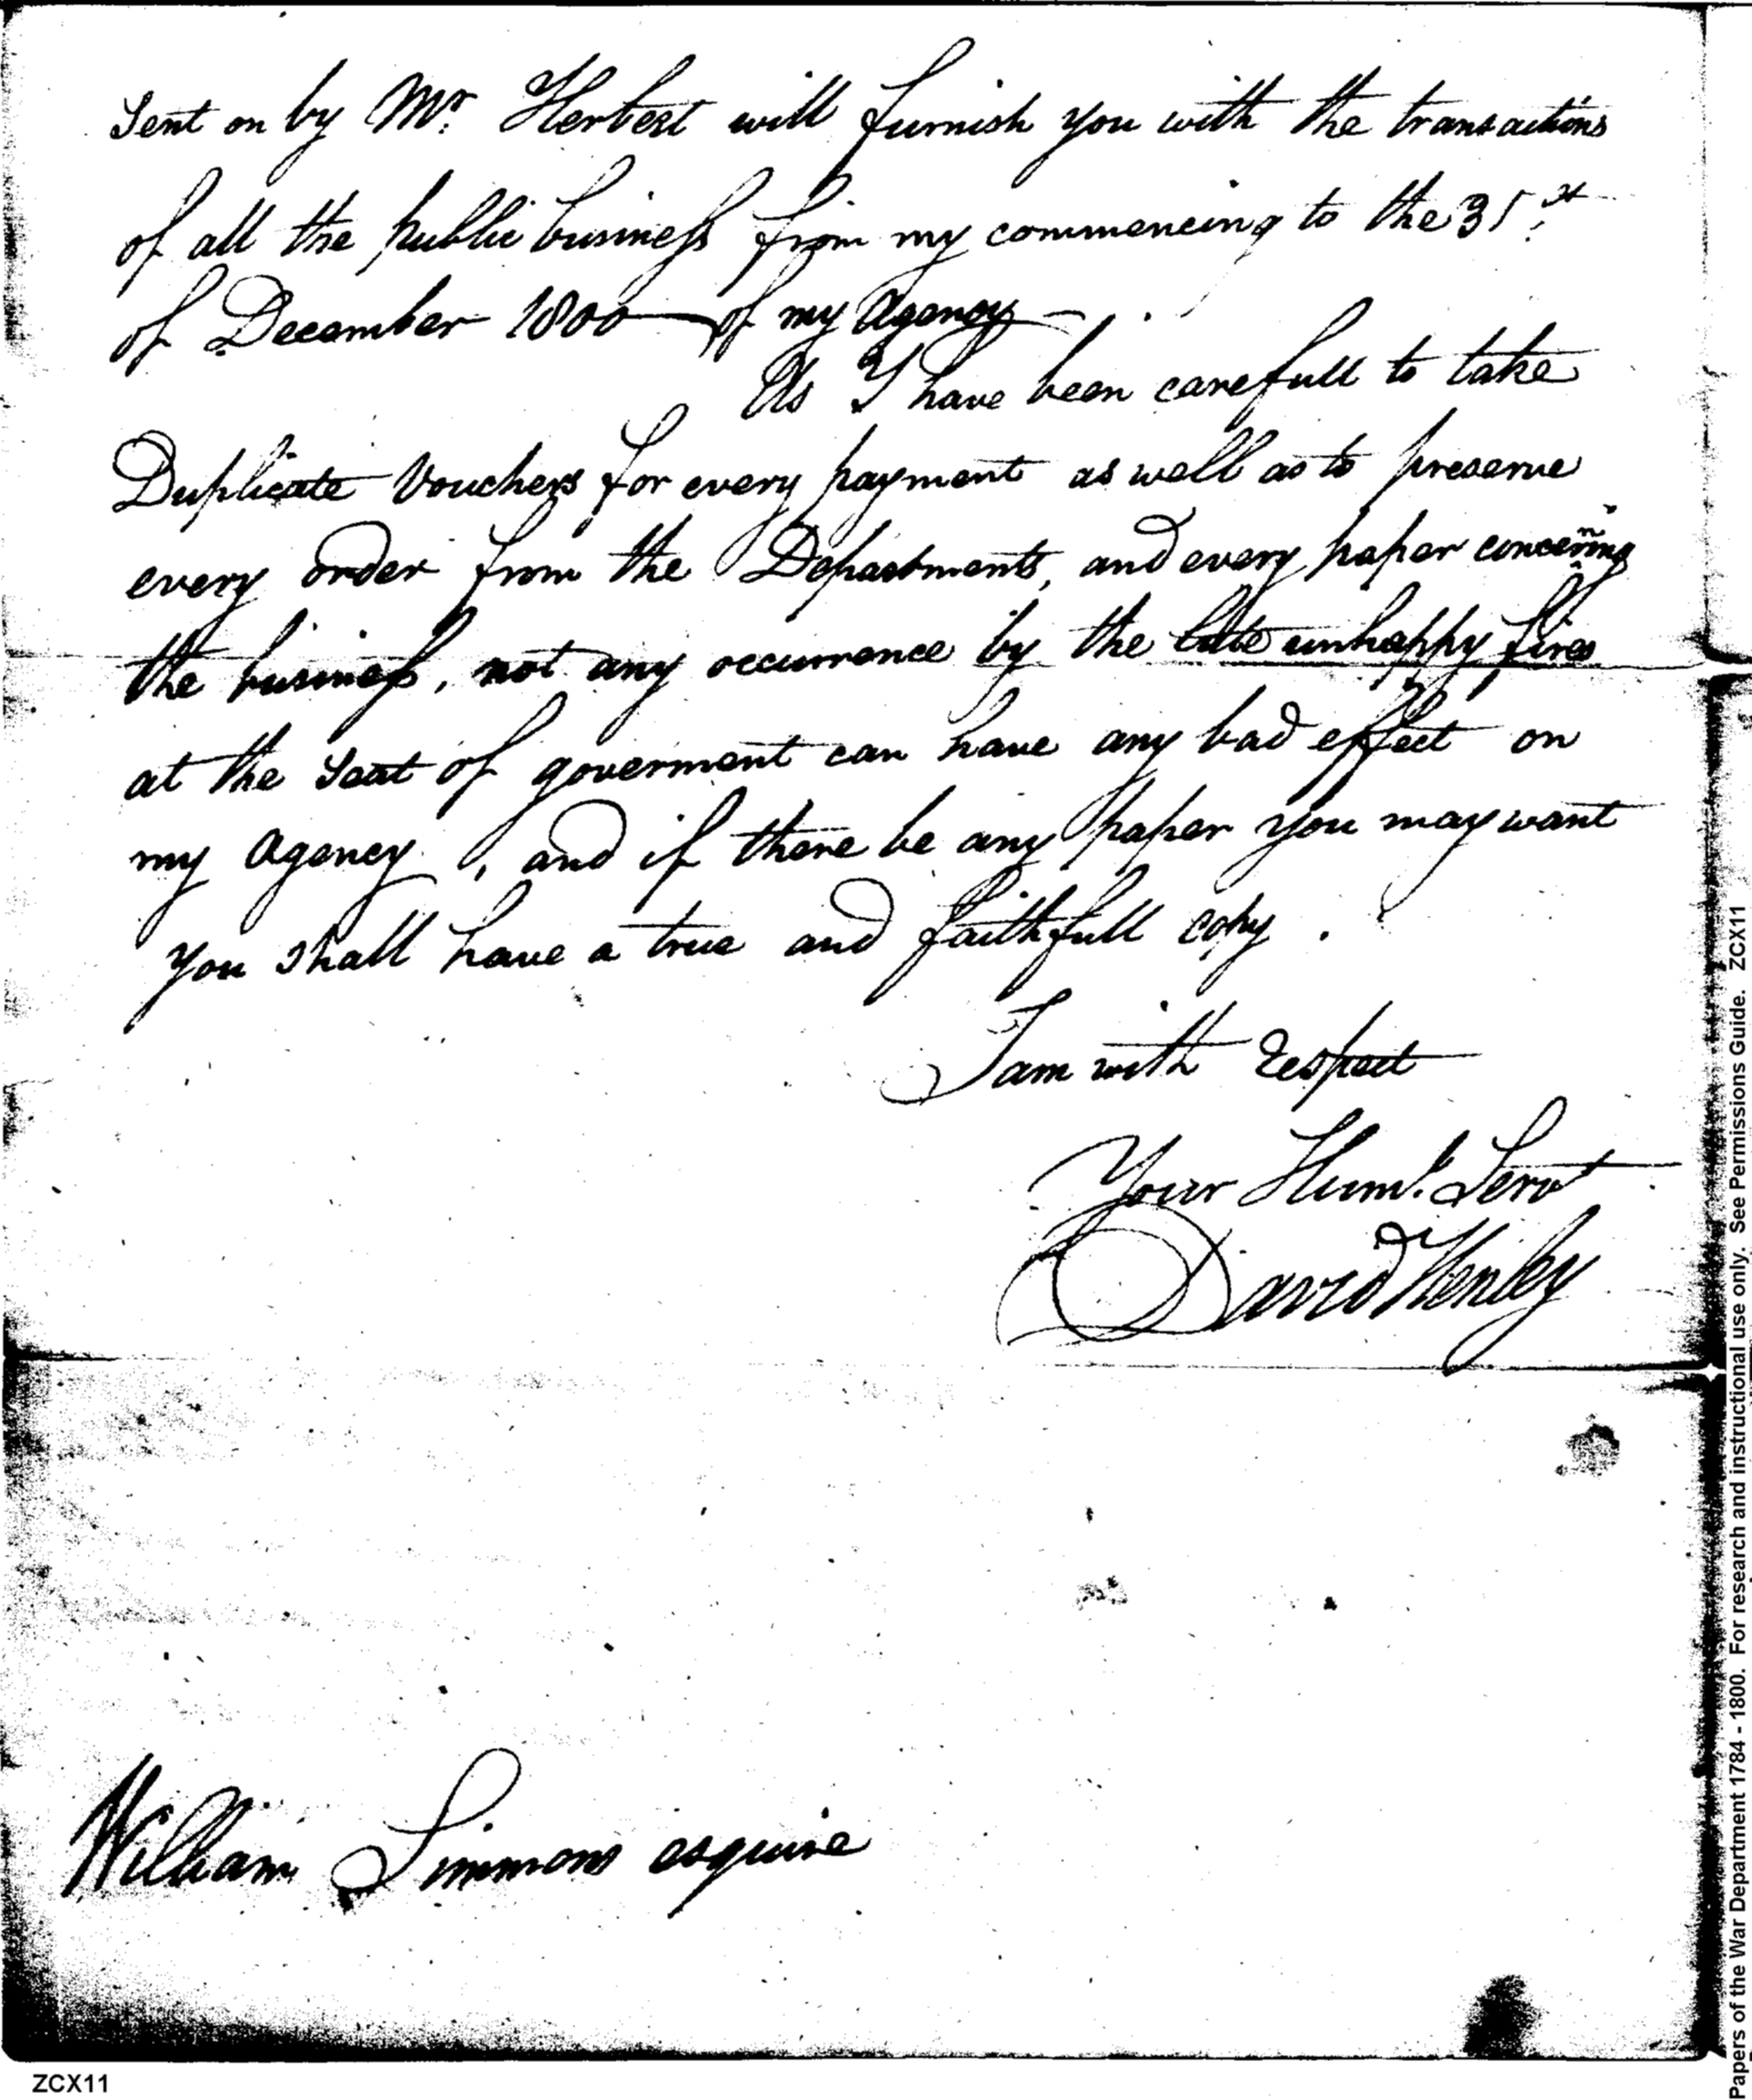 Sent on by Mr. Herbert will furnish you with the transactions
of all the public business from my commencing to the 31st.
of December 1800 — of my Agency —
As I have been carefull to take
Duplicate Vouchers for every payment as well as to preserve
every order from the Departments, and every paper concerning
the business, not any occurrence by the late unhappy fires
at the Seat of goverment can have any bad effect on
my Agency, and if there be any paper you may want
you shall have a true and faithfull copy.
I am with Respect
Your Huml. Servt
David Henley
William Simmons esquire
ZCX11
Papers of the War Department 1784 - 1800. For research and instructional use only. See Permissions Guide. ZCX11